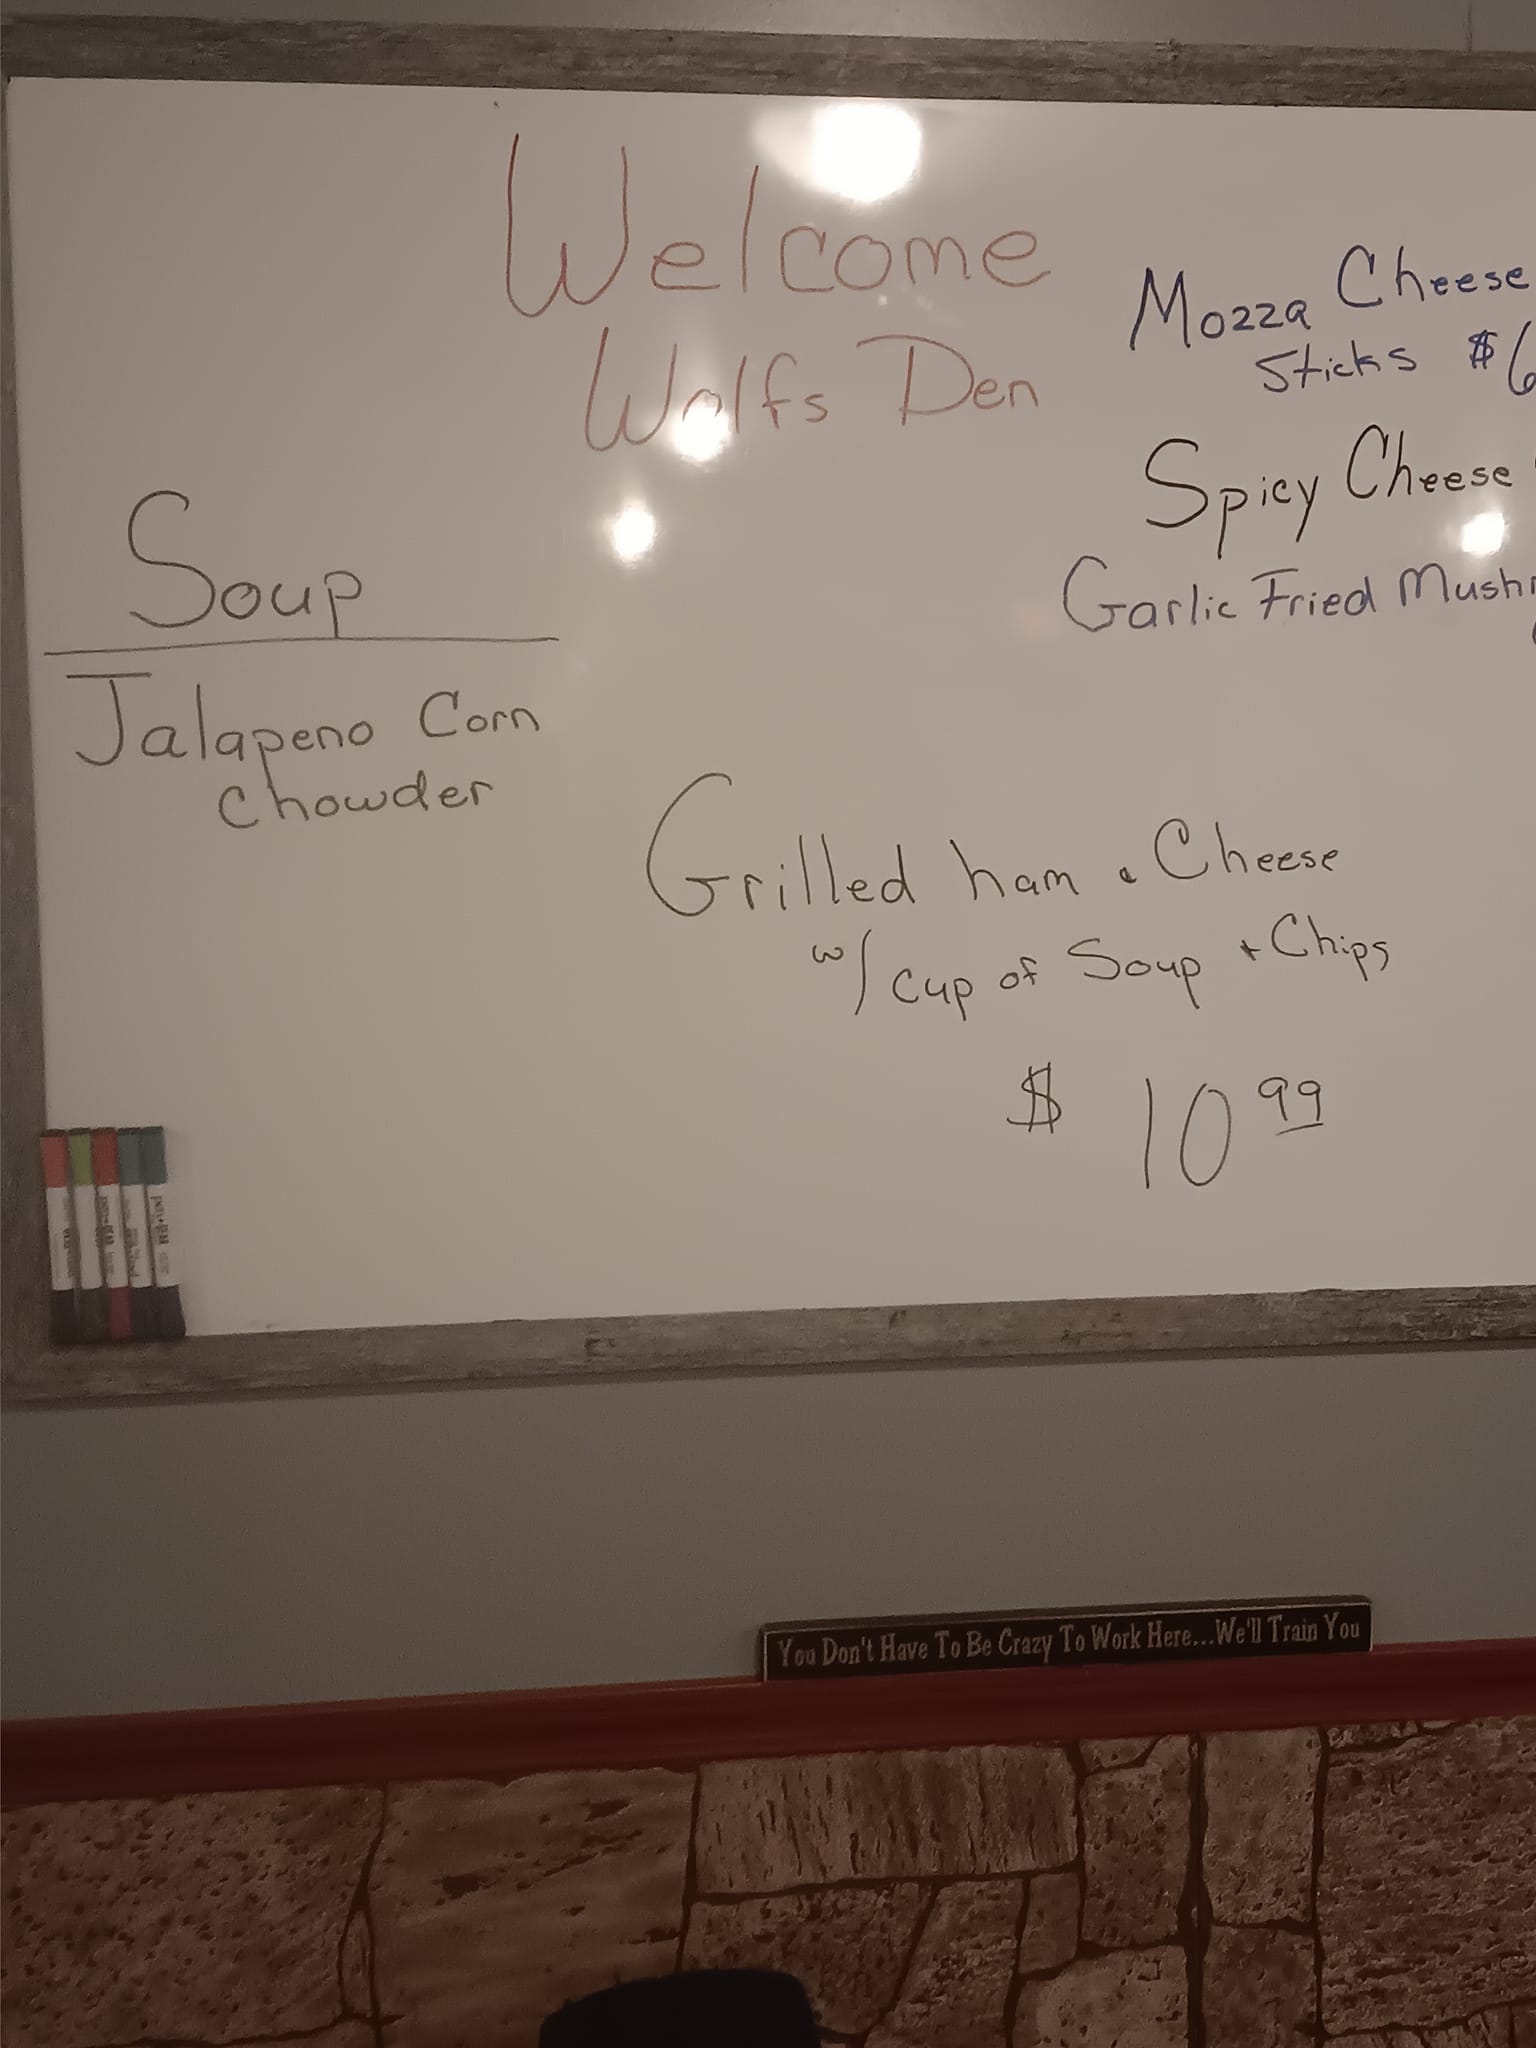 Welcome
Wolfs Den
Mozza Cheese
Sticks $6
Spicy Cheese
Garlic Fried
Soup
Jalapeno Corn
Chowder
Grilled ham & Cheese
w/ cup of Soup + Chips
$ 10 99
You Don't Have To Be Crazy To Work Here...We'll Train You